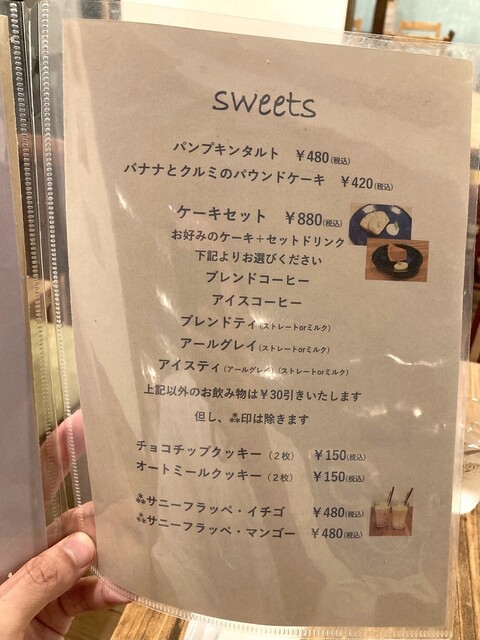 sweets
パンプキンタルト ￥480(税込)
バナナとクルミのパウンドケーキ ￥420(税込)
ケーキセット ￥880(税込)
お好みのケーキ＋セットドリンク
下記よりお選びください
ブレンドコーヒー
アイスコーヒー
ブレンドティ(ストレートorミルク)
アールグレイ(ストレートorミルク)
アイスティ(アールグレイ)(ストレートorミルク)
上記以外のお飲み物は￥30引きいたします
但し、⁂印は除きます
チョコチップクッキー（２枚） ￥150(税込)
オートミールクッキー（２枚） ￥150(税込)
⁂サニーフラッペ・イチゴ ￥480(税込)
⁂サニーフラッペ・マンゴー ￥480(税込)